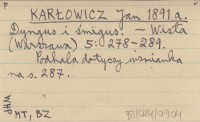 KARŁOWICZ Jan 1891 a.
Dyngus i śmigus. – Wisła
(Warszawa) 5: 278-289.
Podhala dotyczy wzmianka
na s. 287.
MT, BZ